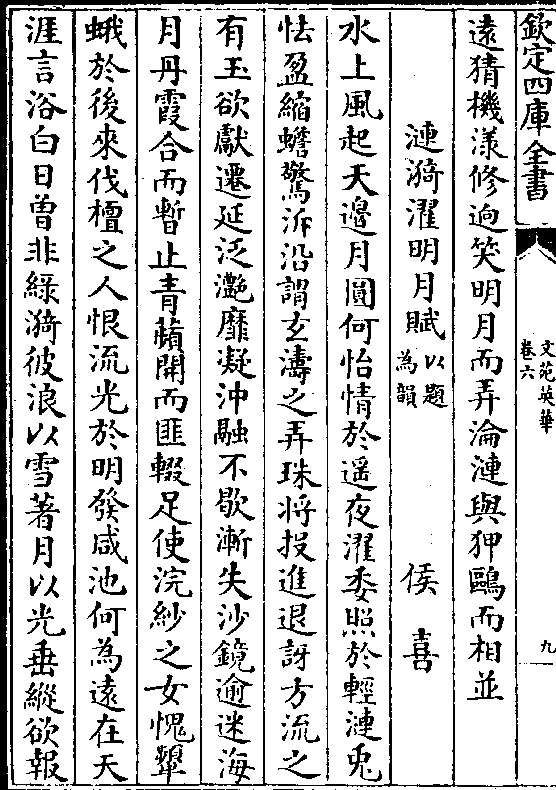 欽定四庫全書
文苑英華
卷六
九
遠猜機漾修迥笑明月而弄淪漣與狎鷗而相並
漣漪濯明月賦以題為韻 侯喜
水上風起天邊月圓何怡情於遥夜濯委照於輕漣兎
怯盈縮蟾驚泝沿謂玄濤之弄珠將投進退訝方流之
有玉欲獻遷延泛灔靡凝沖融不歇漸失沙鏡逾迷海
月丹霞合而暫止青蘋開而匪輟足使浣紗之女愧顰
蛾於後來伐檀之人恨流光於明發咸池何為遠在天
涯言浴白日曽非緑漪彼浪以雪著月以光垂縱欲報